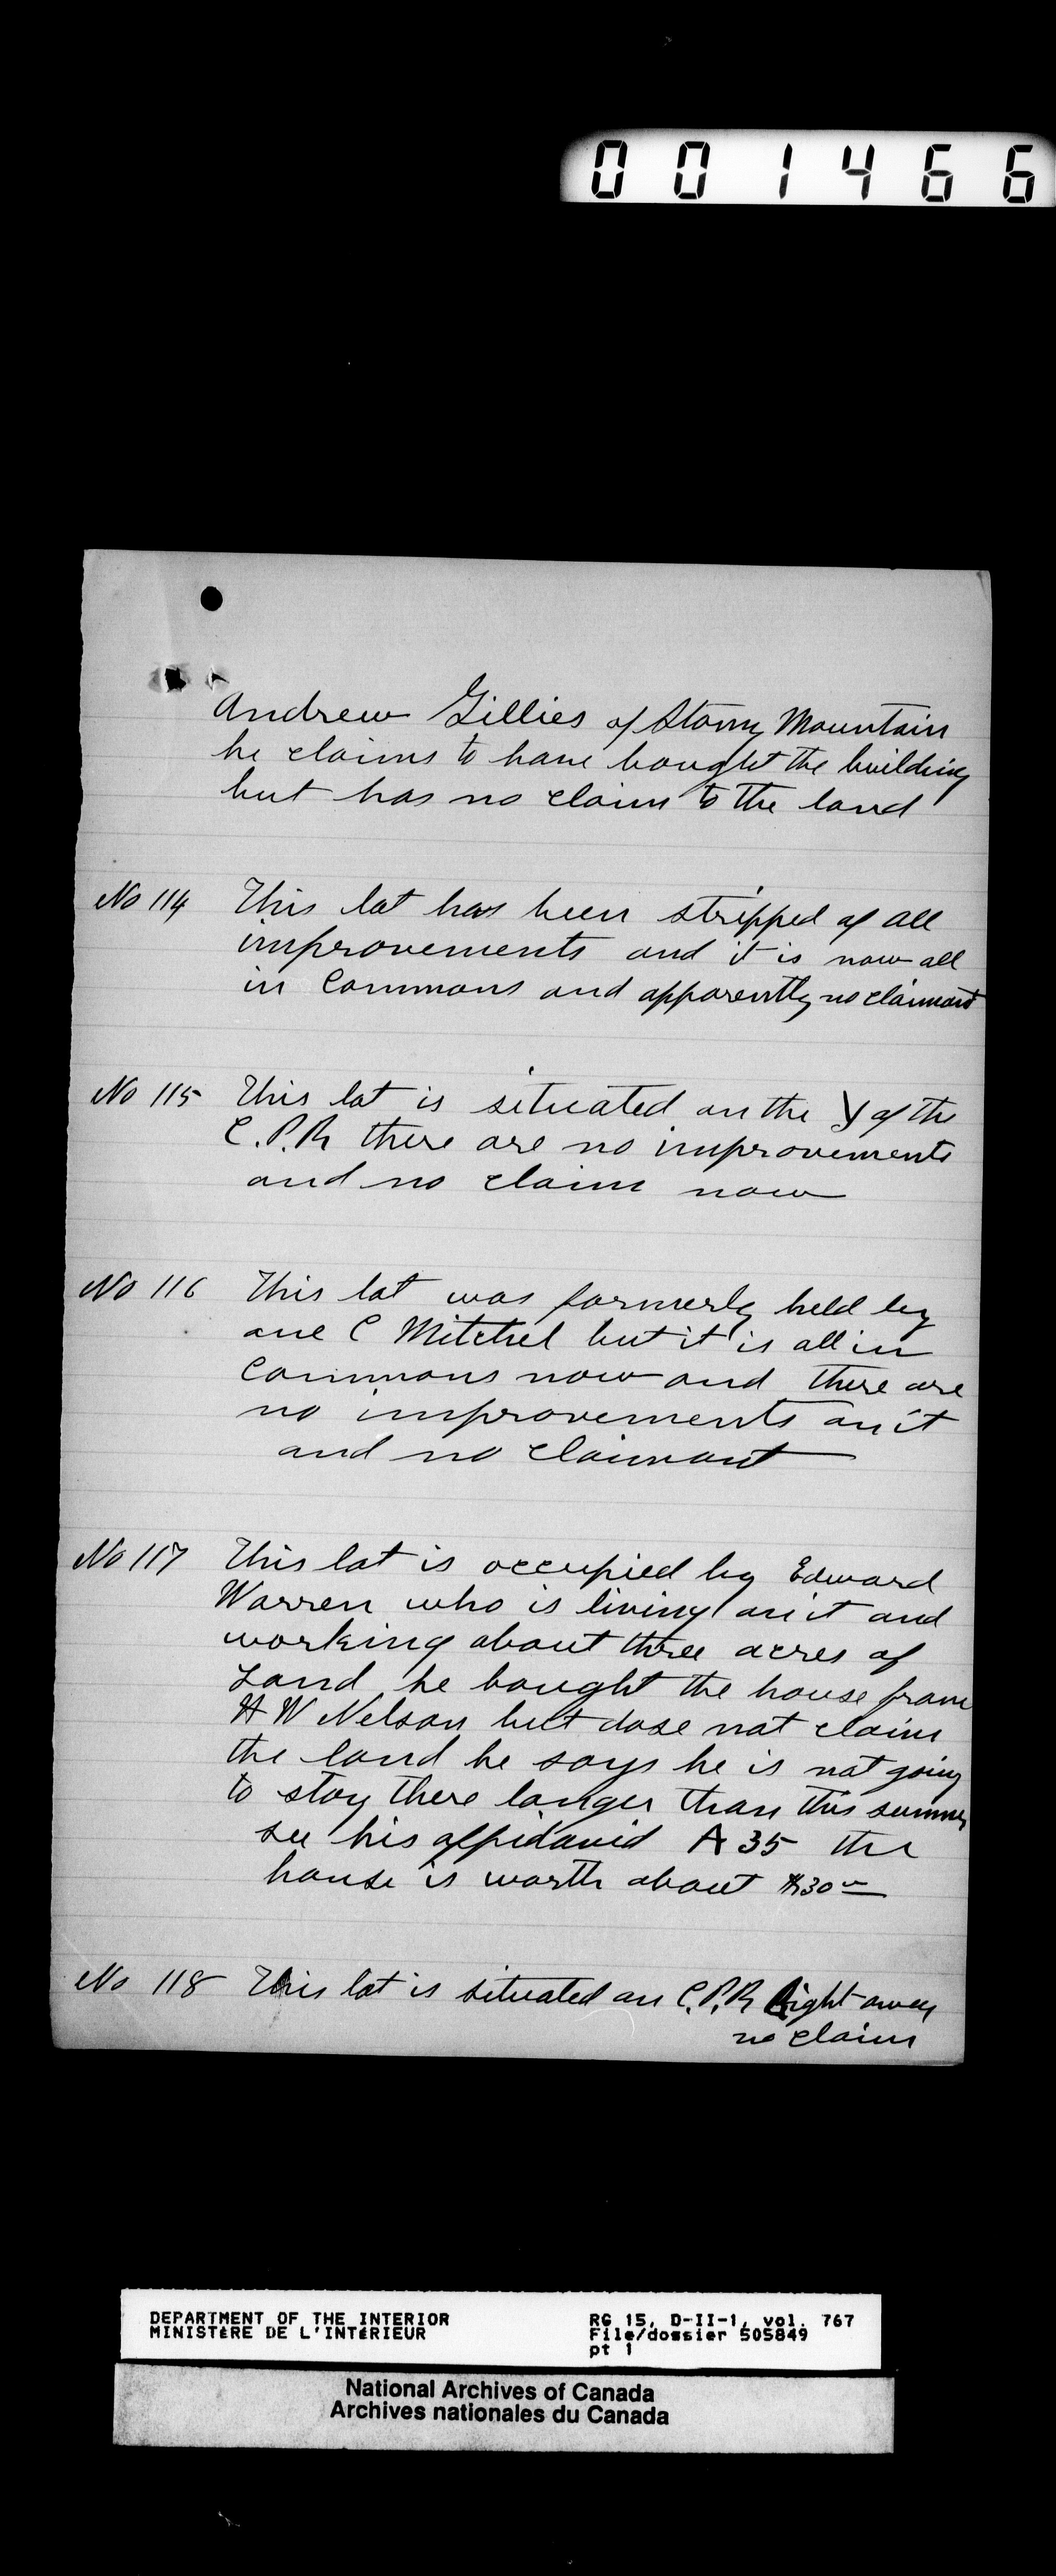 001466
Andrew Gillies of Stony Mountain
he claims to have bought the building
but has no claim to the land
No 114 This lot has been stripped of all
improvements and it is now all
in Commons and apparently no claimant
No 115 This lot is situated on the Y of the
C.P.R there are no improvements
and no claim now
No 116 This lot was formerly held by
one C Mitchel but it is all in
Commons now and there are
no improvements on it
and no claimant
No 117 This lot is occupied by Edward
Warren who is living on it and
working about three acres of
Land he bought the house from
H W Nelson but dose not claim
the land he says he is not going
to stay there longer than this summer
see his affidavid A 35 the
house is worth about $30
No 118 This lot is situated on C.P.R Right away
no claim
DEPARTMENT OF THE INTERIOR RG 15, D-II-1, vol. 767
MINISTÈRE DE L'INTÉRIEUR File/dossier 505849
pt 1
National Archives of Canada
Archives nationales du Canada